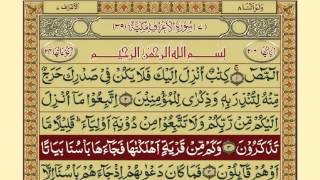 ولو اننا
(٧) سُوْرَةُ الْاَعْرَافِ مَكِّيَّةٌ (٣٩)
بِسْمِ اللهِ الرَّحْمٰنِ الرَّحِيْمِ
الٓمّٓصٓ كِتٰبٌ اُنْزِلَ اِلَيْكَ فَلَا يَكُنْ فِيْ صَدْرِكَ حَرَجٌ
مِّنْهُ لِتُنْذِرَ بِهٖ وَذِكْرٰى لِلْمُؤْمِنِيْنَ اِتَّبِعُوْا مَآ اُنْزِلَ
اِلَيْكُمْ مِّنْ رَّبِّكُمْ وَلَا تَتَّبِعُوْا مِنْ دُوْنِهٖٓ اَوْلِيَآءَ قَلِيْلًا مَّا
تَذَكَّرُوْنَ وَكَمْ مِّنْ قَرْيَةٍ اَهْلَكْنٰهَا فَجَآءَهَا بَاْسُنَا بَيَاتًا
اَوْ هُمْ قَآئِلُوْنَ فَمَا كَانَ دَعْوٰىهُمْ اِذْ جَآءَهُمْ بَاْسُنَآ اِلَّآ